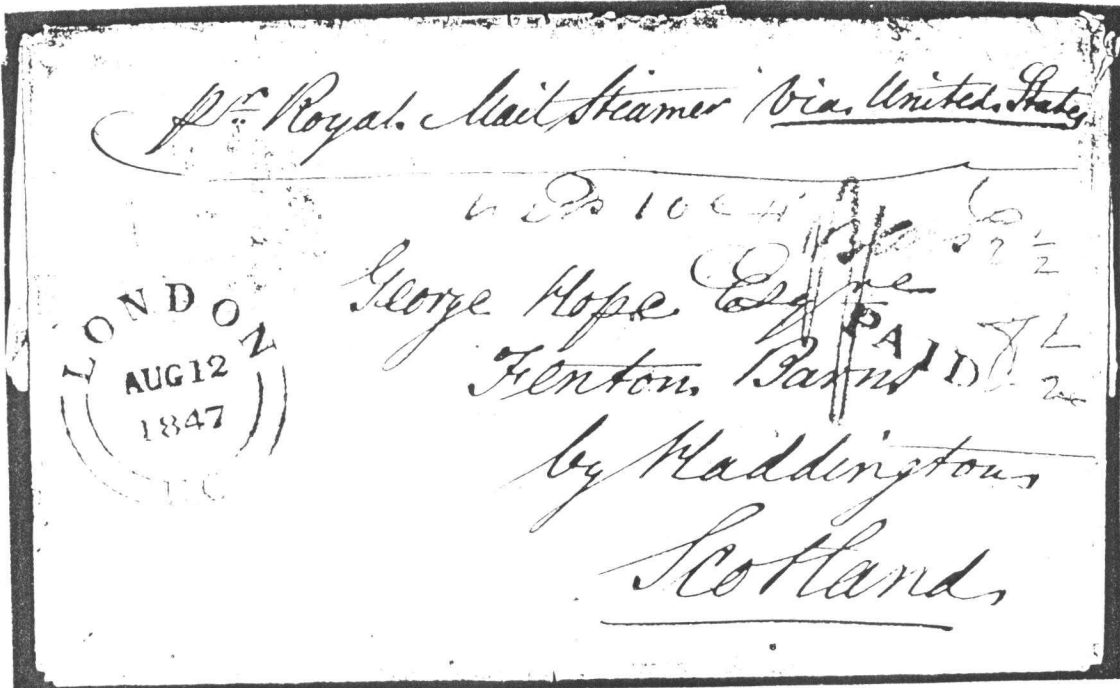 pr Royal Mail Steamer Via United States
6
George Hope Esqre
PAID
Fenton Barns
by Haddington
Scotland
LONDON
AUG 12
1847
U C